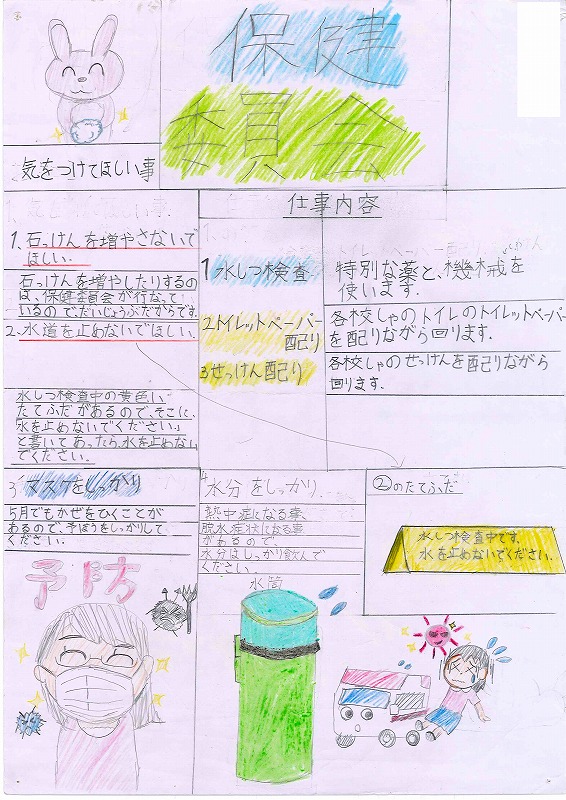 保健
委員会
気をつけてほしい事
1、石っけんを増やさないで
ほしい.
石っけんを増やしたりするの
は、保健委員会が行なって
いるので、だいじょうぶだからです。
2、水道を止めないでほしい.
水しつ検査中の黄色い
たてふだがあるので、そこに、
「水を止めないでください。」
と書いてあったら、水を止めない
でください。
仕事内容
1水しつ検査.
特別な薬と、機械を
使います。
2トイレットペーパー
配り
各校しゃのトイレのトイレットペーパー
を配りながら回ります。
3せっけん配り
各校しゃのせっけんを配りながら
回ります.
3 マスクをしっかり
5月でもかぜをひくことが
あるので、予ぼうをしっかりして
ください.
予防
4水分をしっかり.
熱中症になる事、
脱水症状になる事
があるので、
水分はしっかり飲んで
ください.
水筒
②のたてふだ
水しつ検査中です.
水を止めないでください.